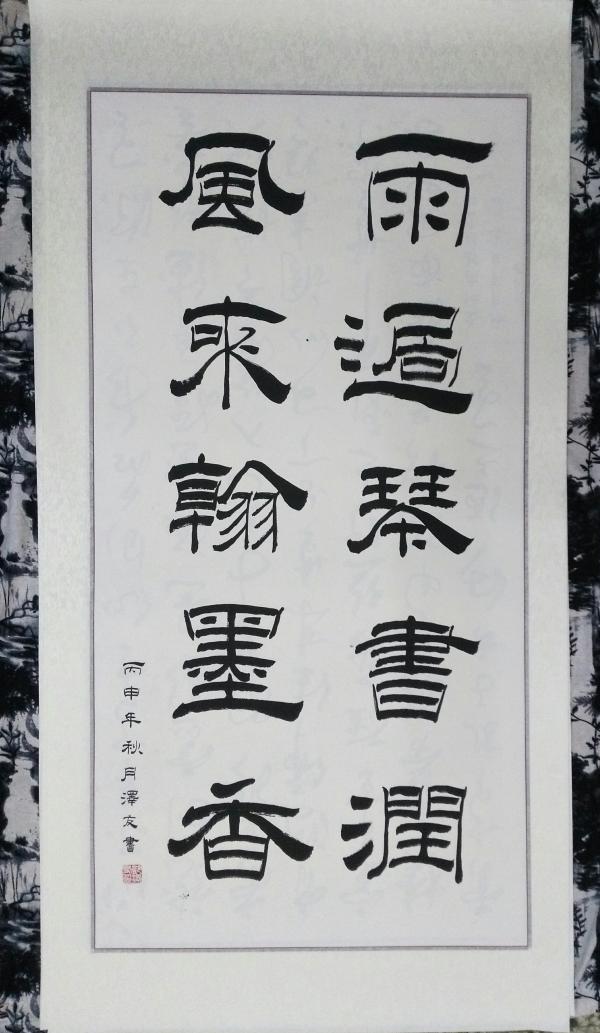 雨過琴書潤
風來翰墨香
丙申年秋月澤友書